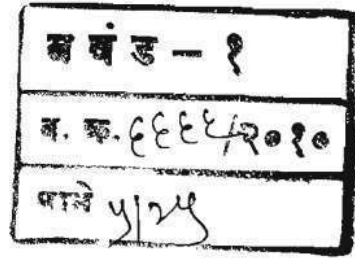 बबंड - १
द. क. ६६६५/२०१०
पाने ५/२५